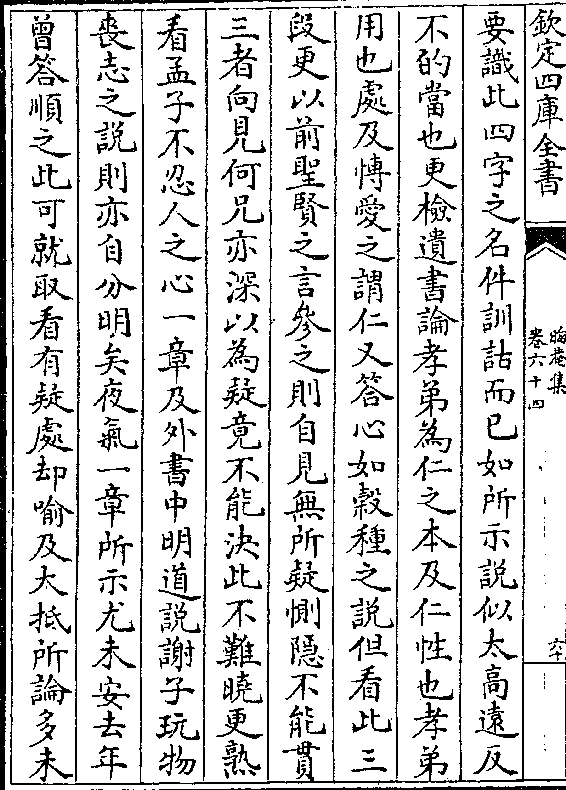 欽定四庫全書
晦菴集
卷六十四
六十
要識此四字之名件訓詁而已如所示說似太高遠反
不的當也更檢遺書論孝弟為仁之本及仁性也孝弟
用也處及愽愛之謂仁又答心如穀種之說但看此三
段更以前聖賢之言參之則自見無所疑惻隠不能貫
三者向見何兄亦深以為疑竟不能決此不難曉更熟
看孟子不忍人之心一章及外書中明道說謝子玩物
喪志之說則亦自分明矣夜氣一章所示尤未安去年
曾答順之此可就取看有疑處却喻及大抵所論多未